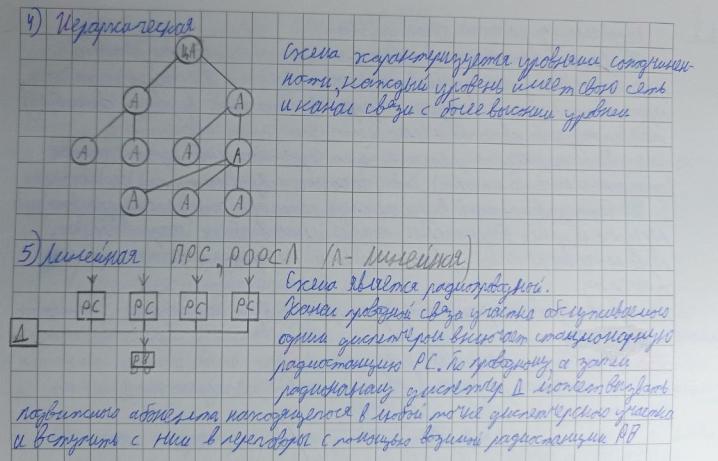 4) Иерархическая
ЦА
Схема характеризуется уровнями соподчинен-
ности, каждый уровень имеет свою сеть
и канал связи с более высшим уровнем
А А
А А А А
А А А
5) Линейная ПРС, РОРСЛ (Л - линейная)
Схема является радиопроводной.
РС РС РС РС
Канал проводной связи участка обслуживаемого
Д
одним диспетчером включает стационарную
радиостанцию РС. По проводному, а затем
РВ
радиоканалу диспетчер Д может вызвать
подвижного абонента находящегося в любой точке диспетчерского участка
и вступить с ним в переговоры с помощью возимой радиостанции РВ